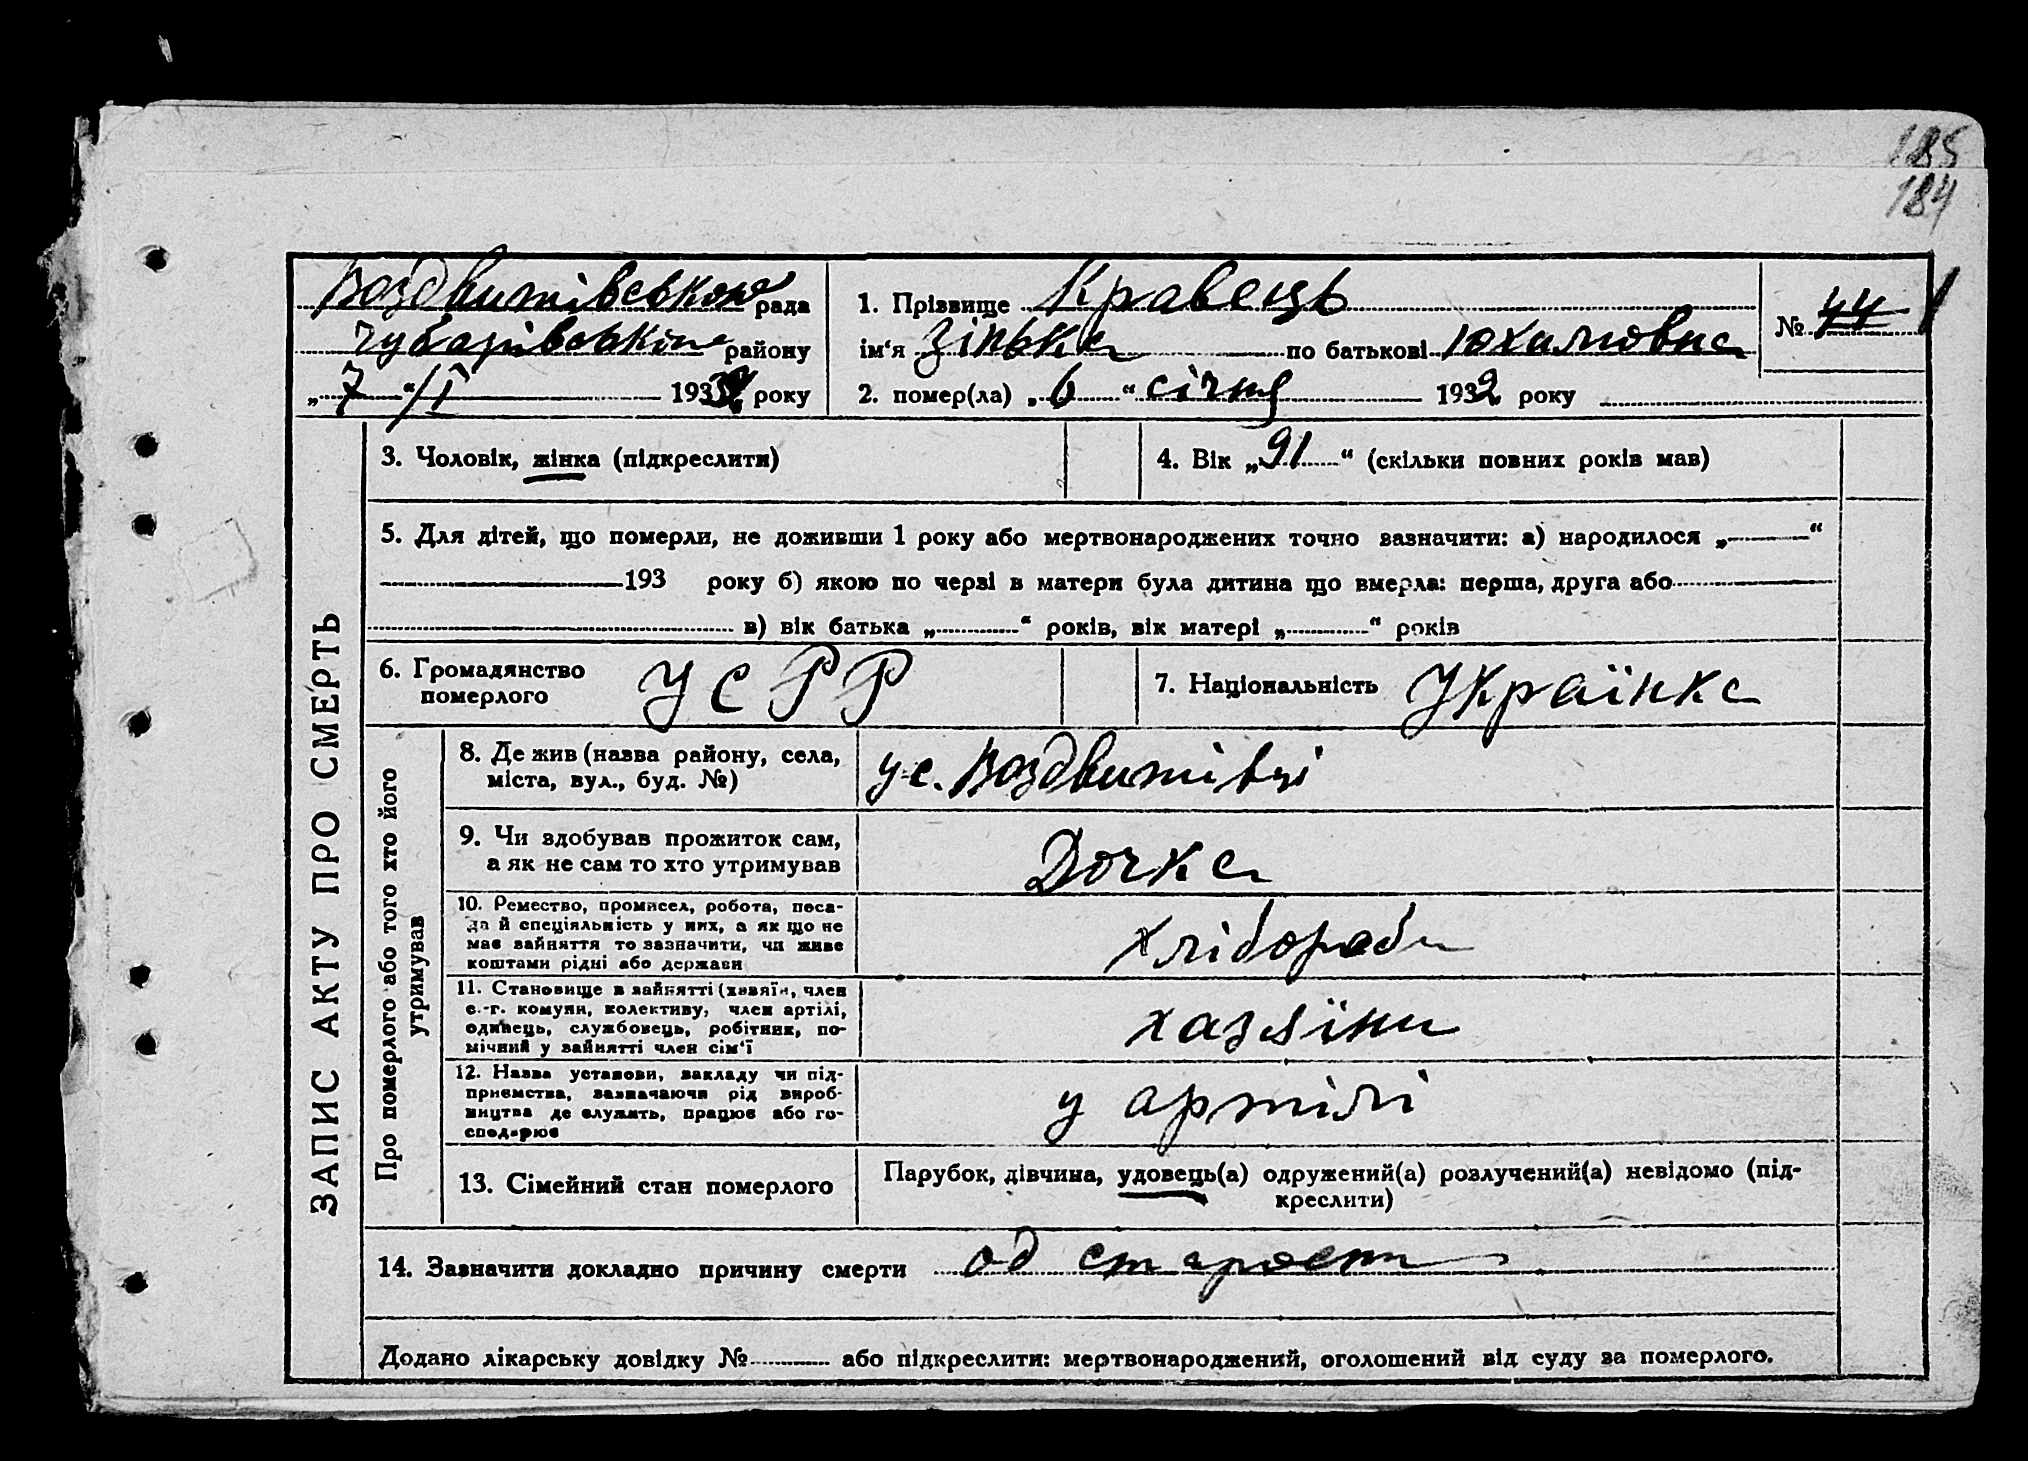 185
184
Воздвижівською рада
Чубарівського району
„7“/I 1932 року
1. Прізвище Кравець
ім‘я Зінька по батькові Юхимовна
2. помер(ла) „6“ січня 1932 року
№ 44 1
ЗАПИС АКТУ ПРО СМЕРТЬ
3. Чоловік, жінка (підкреслити)
4. Вік „91“ (скільки повних років мав)
5. Для дітей, що померли, не доживши 1 року або мертвонароджених точно зазначити: а) народилося „ “
193 року б) якою по черзі в матери була дитина що вмерла: перша, друга або
в) вік батька „ “ років, вік матері „ “ років
6. Громадянство
померлого УСРР
7. Національність Українка
Про померлого або того хто його
утримував
8. Де жив (назва району, села,
міста, вул., буд. №) у с. Воздвижівці
9. Чи здобував прожиток сам,
а як не сам то хто утримував Дочка
10. Ремество, промисел, робота, поса-
да й спеціяльність у них, а як що не
має зайняття то зазначити, чи живе
коштами рідні або держави хлібороби
11. Становище в зайнятті (хазяїн, член
с.-г. комуни, колективу, член артілі,
одинець, службовець, робітник, по-
мічний у зайнятті член сім‘ї хазяїни
12. Назва установи, закладу чи під-
приємства, зазначаючи рід вироб-
ництва де служить, працює або го-
сподарює у артілі
13. Сімейний стан померлого
Парубок, дівчина, удовець(а) одружений(а) розлучений(а) невідомо (під-
креслити)
14. Зазначити докладно причину смерти од старости
Додано лікарську довідку № або підкреслити: мертвонароджений, оголошений від суду за померлого.